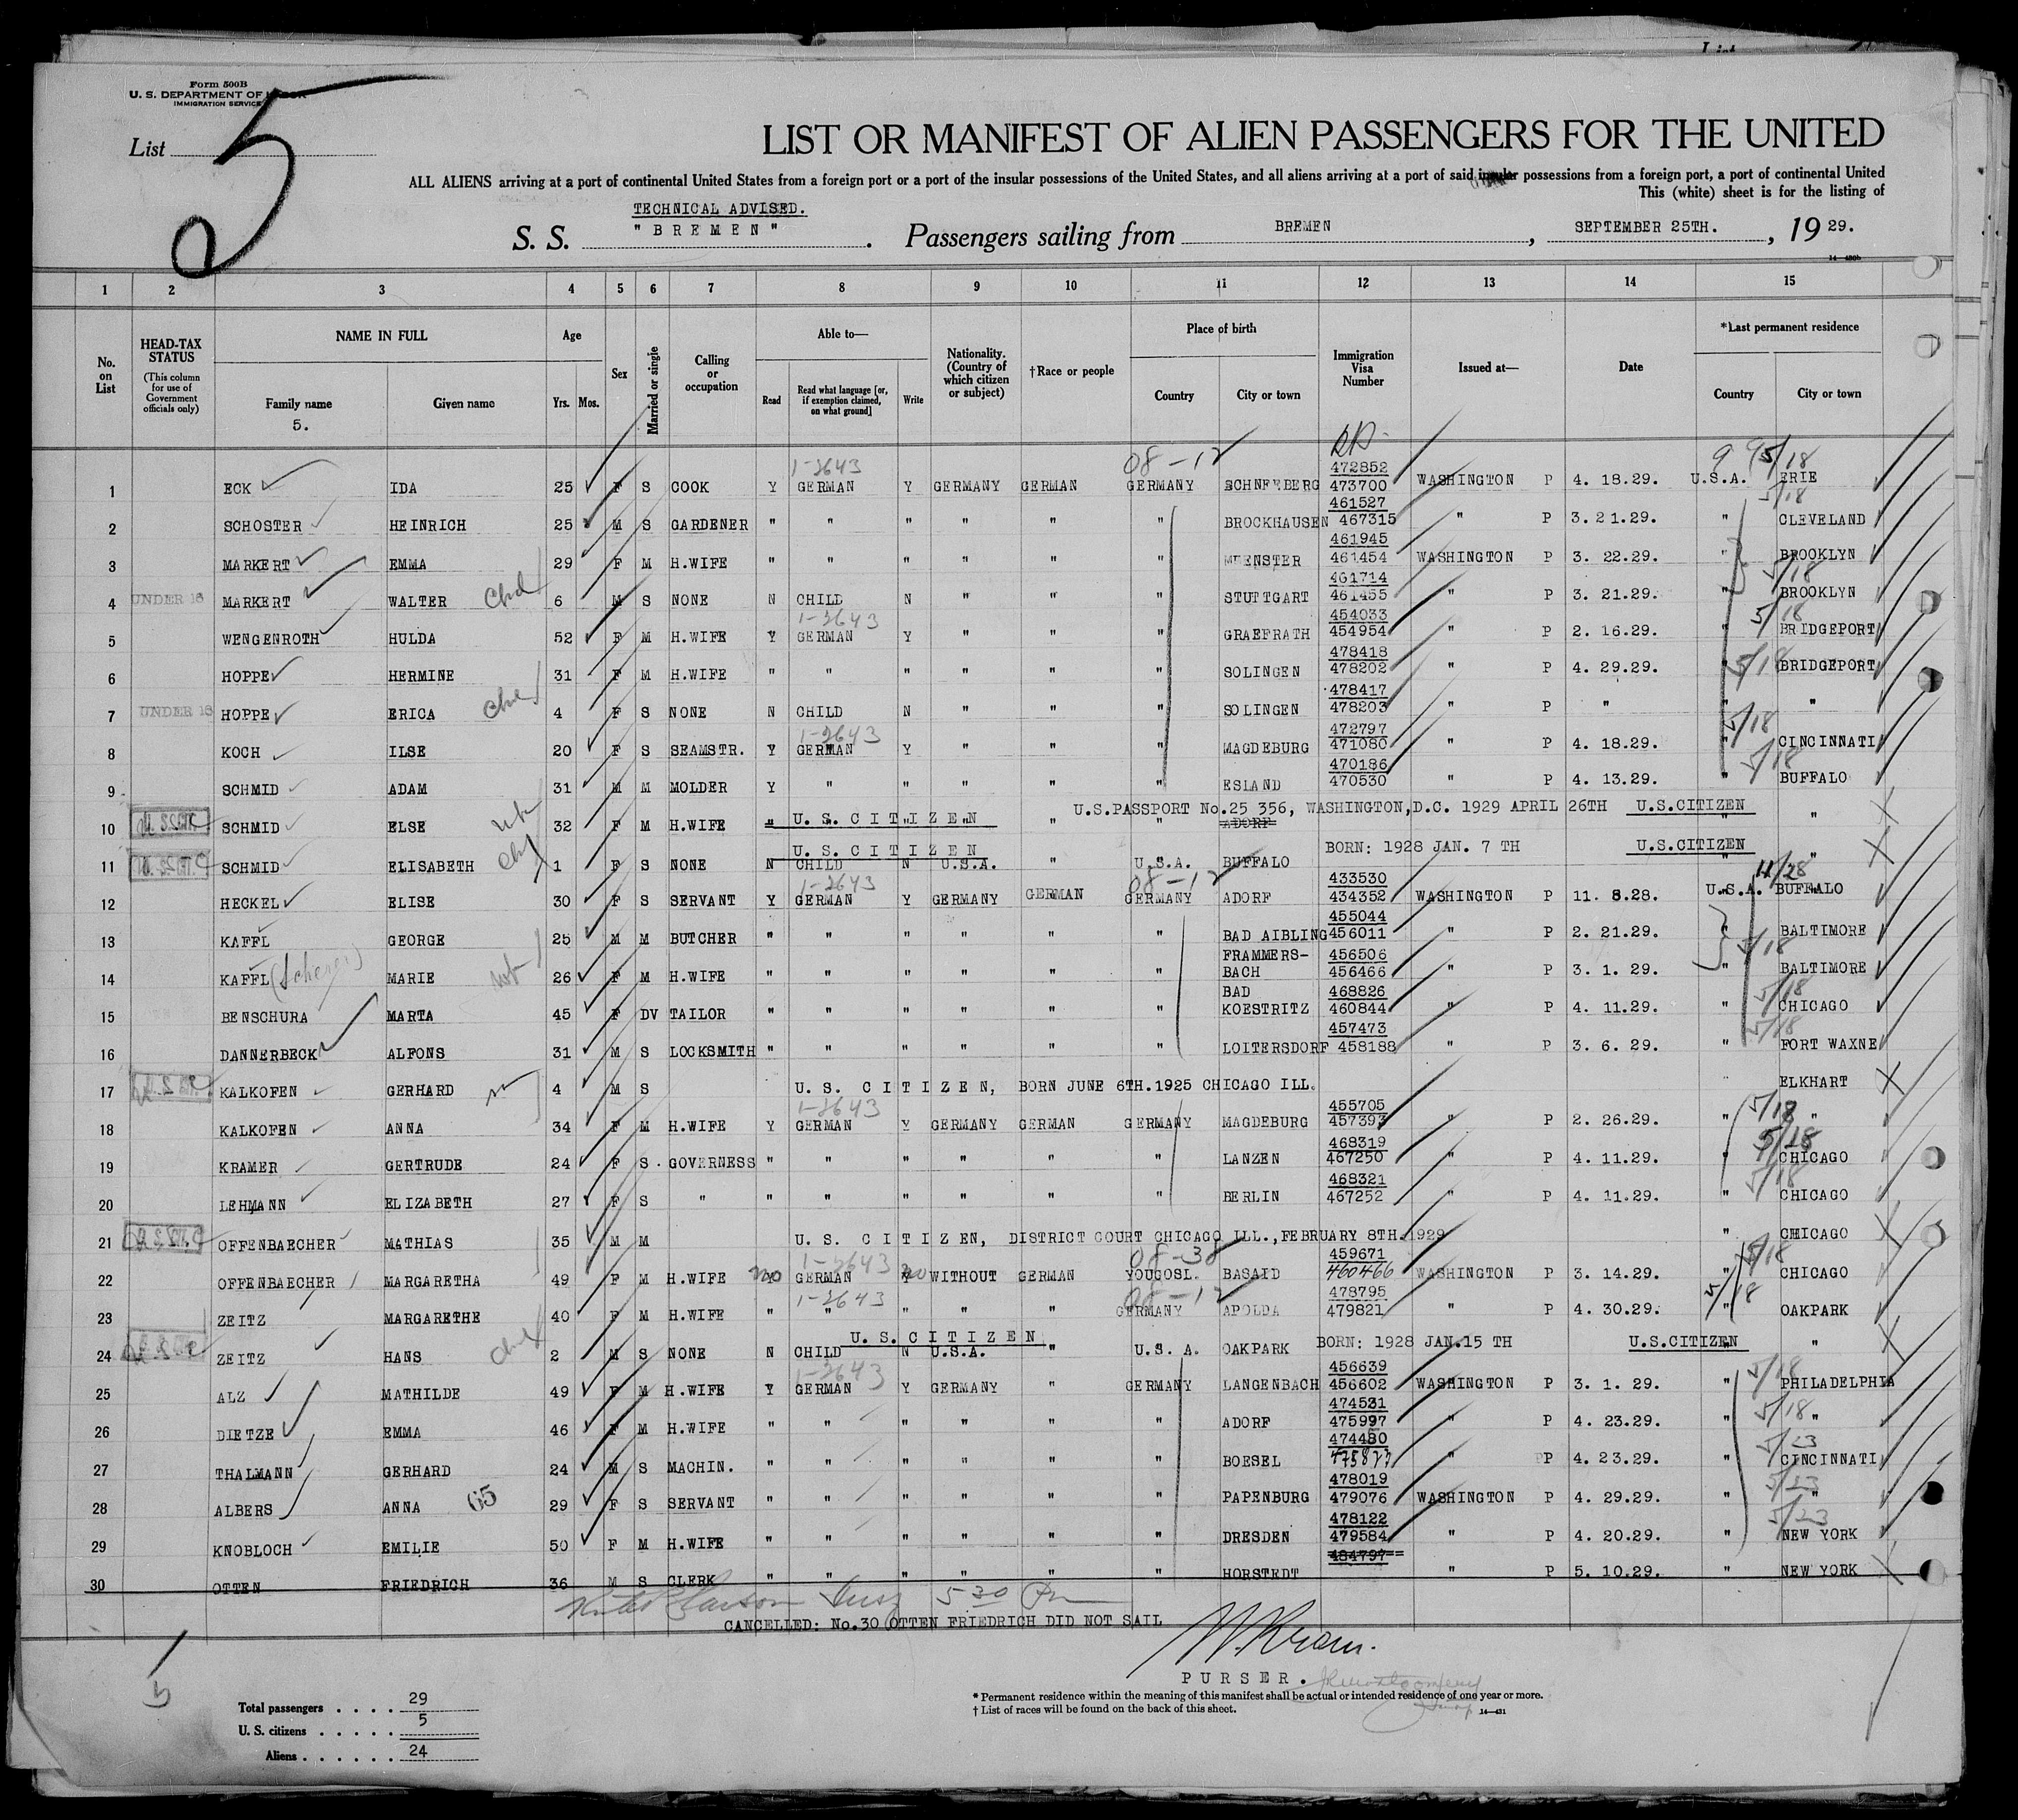 Form 500B
U. S. DEPARTMENT OF LABOR
IMMIGRATION SERVICE
List 5
LIST OR MANIFEST OF ALIEN PASSENGERS FOR THE UNITED
ALL ALIENS arriving at a port of continental United States from a foreign port or a port of the insular possessions of the United States, and all aliens arriving at a port of said insular possessions from a foreign port, a port of continental United
This (white) sheet is for the listing of
TECHNICAL ADVISED.
S. S. "BREMEN" . Passengers sailing from BREMEN , SEPTEMBER 25TH. , 19 29.
1 2 3 4 5 6 7 8 9 10 11 12 13 14 15
No. on List
HEAD-TAX STATUS (This column for use of Government officials only)
NAME IN FULL Family name Given name
5.
Age Yrs. Mos.
Sex
Married or single
Calling or occupation
Able to— Read Read what language [or, if exemption claimed, on what ground] Write
Nationality. (Country of which citizen or subject)
†Race or people
Place of birth Country City or town
Immigration Visa Number
Issued at—
Date
*Last permanent residence Country City or town
1-2643 08-12 472852 5/18
1 ECK IDA 25 F S COOK Y GERMAN Y GERMANY GERMAN GERMANY SCHNEEBERG 473700 WASHINGTON P 4. 18.29. U.S.A. ERIE
461527 5/18
2 SCHOSTER HEINRICH 25 M S GARDENER " " " " " " BROCKHAUSEN 467315 " P 3. 21.29. " CLEVELAND
461945
3 MARKERT EMMA 29 F M H.WIFE " " " " " " MUENSTER 461454 WASHINGTON P 3. 22.29. " BROOKLYN
461714 5/18
4 UNDER 16 MARKERT WALTER Chd 6 M S NONE N CHILD N " " " STUTTGART 461455 " P 3. 21.29. " BROOKLYN
1-2643 454033 5/18
5 WENGENROTH HULDA 52 F M H.WIFE Y GERMAN Y " " " GRAEFRATH 454954 " P 2. 16.29. " BRIDGEPORT
478418
6 HOPPE HERMINE 31 F M H.WIFE " " " " " " SOLINGEN 478202 " P 4. 29.29. " 5/18 BRIDGEPORT
478417
7 UNDER 16 HOPPE ERICA Chd 4 F S NONE N CHILD N " " " SOLINGEN 478203 " P " " "
1-2643 472797 5/18
8 KOCH ILSE 20 F S SEAMSTR. Y GERMAN Y " " " MAGDEBURG 471080 " P 4. 18.29. " CINCINNATI
470186 5/18
9 SCHMID ADAM 31 M M MOLDER Y " " " " " ESLAND 470530 " P 4. 13.29. " BUFFALO
U.S.PASSPORT No.25 356, WASHINGTON,D.C. 1929 APRIL 26TH U.S.CITIZEN
10 SCHMID ELSE 32 F M H.WIFE " U. S. C I T I Z E N " " ADORF " "
U. S. C I T I Z E N BORN: 1928 JAN. 7 TH U.S.CITIZEN
11 SCHMID ELISABETH 1 F S NONE N CHILD N U.S.A. " U.S.A. BUFFALO " "
1-2643 08-12 433530 11/28
12 HECKEL ELISE 30 F S SERVANT Y GERMAN Y GERMANY GERMAN GERMANY ADORF 434352 WASHINGTON P 11. 8.28. U.S.A. BUFFALO
455044
13 KAFFL GEORGE 25 M M BUTCHER " " " " " " BAD AIBLING 456011 " P 2. 21.29. " BALTIMORE
FRAMMERS- 456506 5/18
14 KAFFL MARIE 26 F M H.WIFE " " " " " " BACH 456466 " P 3. 1. 29. " BALTIMORE
BAD 468826 5/18
15 BENSCHURA MARTA 45 F DV TAILOR " " " " " " KOESTRITZ 460844 " P 4. 11.29. " CHICAGO
457473 5/18
16 DANNERBECK ALFONS 31 M S LOCKSMITH " " " " " " LOITERSDORF 458188 " P 3. 6. 29. " FORT WAXNE
17 KALKOFEN GERHARD 4 M S U. S. C I T I Z E N, BORN JUNE 6TH.1925 CHICAGO ILL. ELKHART
1-2643 455705 5/18
18 KALKOFEN ANNA 34 F M H.WIFE Y GERMAN Y GERMANY GERMAN GERMANY MAGDEBURG 457393 " P 2. 26.29. " "
468319 5/18
19 KRAMER GERTRUDE 24 F S. GOVERNESS " " " " " " LANZEN 467250 " P 4. 11.29. " CHICAGO
468321 5/18
20 LEHMANN ELIZABETH 27 F S " " " " " " " BERLIN 467252 " P 4. 11.29. " CHICAGO
21 OFFENBAECHER MATHIAS 35 M M U. S. C I T I Z E N, DISTRICT COURT CHICAGO ILL.,FEBRUARY 8TH.1929 " CHICAGO
1-2643 08-38 459671 5/18
22 OFFENBAECHER MARGARETHA 49 F M H.WIFE no GERMAN no WITHOUT GERMAN YOUGOSL. BASAID 460466 WASHINGTON P 3. 14.29. " CHICAGO
1-2643 08-12 478795 5/18
23 ZEITZ MARGARETHE 40 F M H.WIFE " " " " " GERMANY APOLDA 479821 " P 4. 30.29. " OAKPARK
U. S. C I T I Z E N BORN: 1928 JAN.15 TH U.S.CITIZEN
24 ZEITZ HANS 2 M S NONE N CHILD N U.S.A. " U.S. A. OAKPARK " "
1-2643 456639 5/18
25 ALZ MATHILDE 49 F M H.WIFE Y GERMAN Y GERMANY " GERMANY LANGENBACH 456602 WASHINGTON P 3. 1. 29. " PHILADELPHIA
474531 5/18
26 DIETZE EMMA 46 F M H.WIFE " " " " " " ADORF 475997 " P 4. 23.29. " "
474480 5/23
27 THALMANN GERHARD 24 M S MACHIN. " " " " " " BOESEL " P 4. 23.29. " CINCINNATI
478019 5/23
28 ALBERS ANNA 65 29 F S SERVANT " " " " " " PAPENBURG 479076 WASHINGTON P 4. 29.29. " "
478122 5/23
29 KNOBLOCH EMILIE 50 F M H.WIFE " " " " " " DRESDEN 479584 " P 4. 20.29. " NEW YORK
484797
30 OTTEN FRIEDRICH 36 M S CLERK " " " " " " HORSTEDT " P 5. 10.29. " NEW YORK
5 30 Pm
CANCELLED: No.30 OTTEN FRIEDRICH DID NOT SAIL
P U R S E R .
* Permanent residence within the meaning of this manifest shall be actual or intended residence of one year or more.
† List of races will be found on the back of this sheet.
14—431
Total passengers . . . . 29
U. S. citizens . . . . . 5
Aliens . . . . . . 24